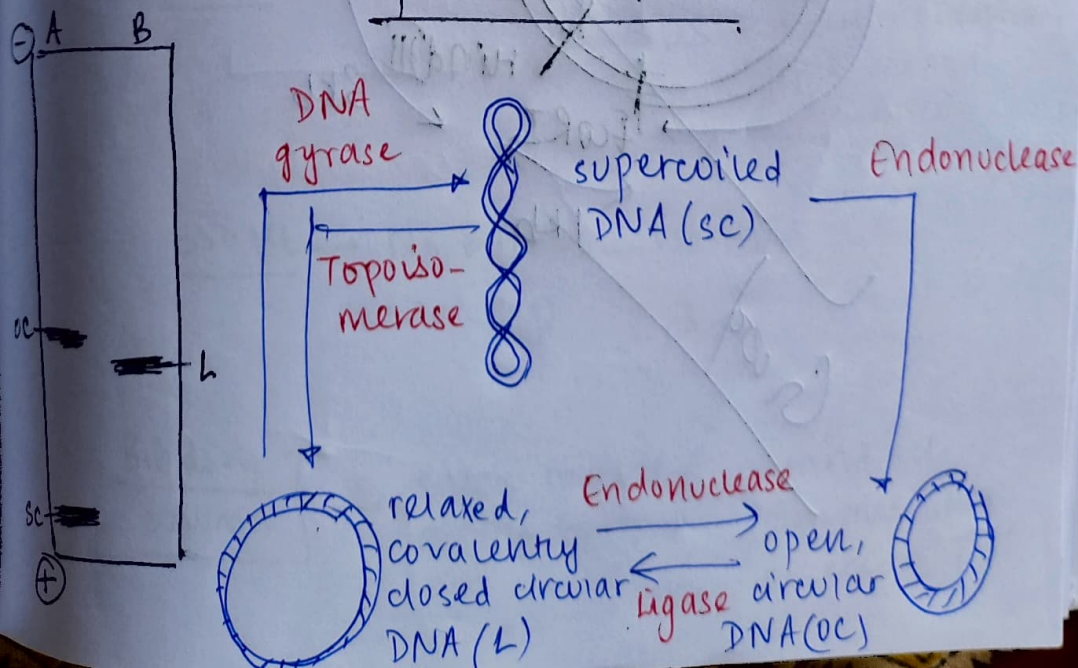 ⊖ A B
DNA
gyrase
Topoiso-
merase
supercoiled
DNA (SC)
Endonuclease
OC
L
SC
⊕
relaxed,
covalently
closed circular
DNA (L)
Endonuclease
Ligase
open,
circular
DNA (OC)